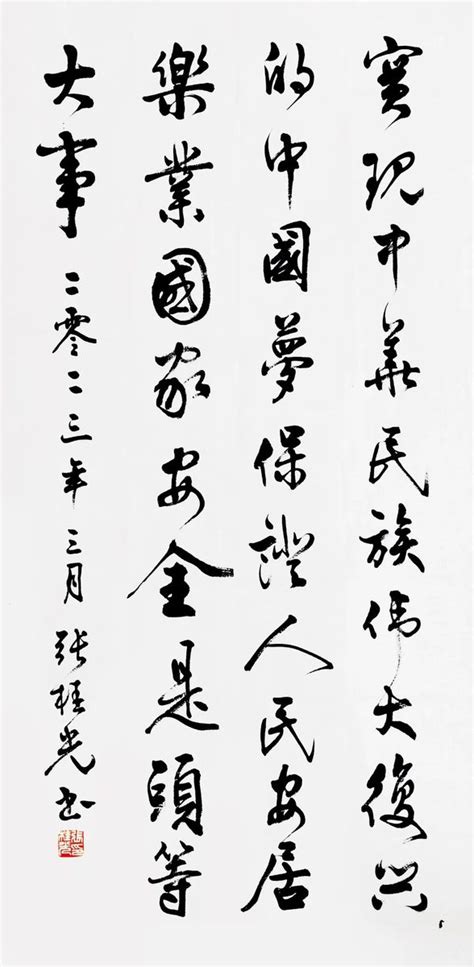 實現中華民族偉大復興
的中國夢保證人民安居
樂業國家安全是頭等
大事 二零二三年三月 張桂光書